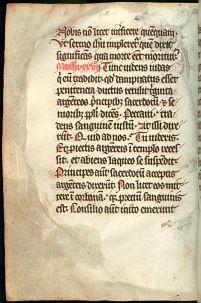 Nobis nō licet inficere quemquam
Ut sermo ihu impleret' quē dixit
significās qua morte eēt moritur'
Tunc videns iudas
q̄ eū tradidit qd dampnatus esset
penitencia ductus retulit triginta
argēteos p̄ncipib; sacerdotū & se
niorib; ppli dicēs. Peccaui tra
dens sanguinē iustū. At illi dixe
rūt. Quid ad nos. Tu uideris.
Et piectis argēteis ī templo recessit
sit. et abiens laqueo se suspēdit.
Principes aūt sacerdotū acceptis
argēteis dixerūt. Non licet eos mit
tere ī corbanā. q̄ pretiū sanguinis
est. Consilio aūt inito emerunt